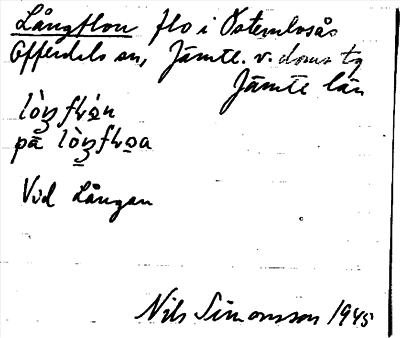 Långflon flo i Östemlosås
Offerdals sn, Jämtl. v. doms tg
Jämtl län
på
Vid Långan
Nils Simonsson 1945